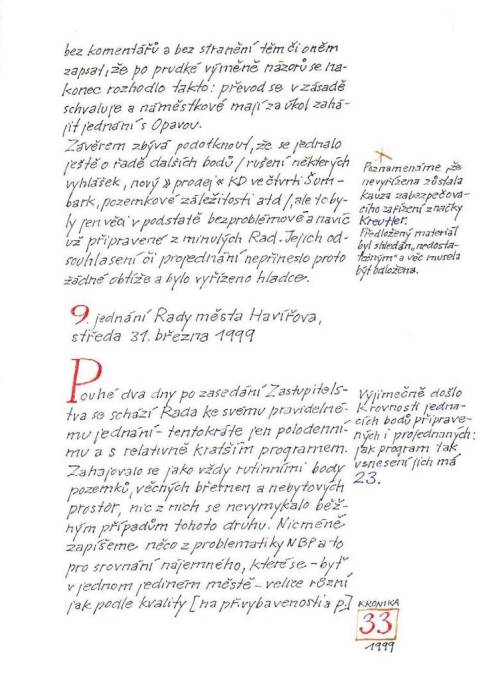 bez komentářů a bez stranění těm či oněm
zapsat, že po prudké výměně názorů se na-
konec rozhodlo takto: převod se v zásadě
schvaluje a náměstkové mají za úkol zahá-
jit jednání s Opavou.
Závěrem zbývá podotknout, že se jednalo
ještě o řadě dalších bodů / rušení některých
vyhlášek, nový » prodej « KD ve čtvrti Šum-
bark, pozemkové záležitosti atd /, ale to by-
ly jen věci v podstatě bezproblémové a navíc
už připravené z minulých Rad. Jejich od-
souhlasení či projednání nepřineslo proto
žádné obtíže a bylo vyřízeno hladce.
Poznamenáme, že
nevyřešena zůstala
kauza zabezpečova-
cího zařízení značky
Kreutler.
Předložený materiál
byl shledán „nedosta-
tečným“ a věc musela
být odložena.
9. jednání Rady města Havířova,
středa 31. března 1999
Pouhé dva dny po zasedání Zastupitels-
tva se schází Rada ke svému pravidelné-
mu jednání - tentokráte jen polodenní-
mu a s relativně kratším programem.
Zahajovalo se jako vždy rutinními body
pozemků, věcných břemen a nebytových
prostor, nic z nich se nevymykalo běž-
ným případům tohoto druhu. Nicméně
zapíšeme něco z problematiky NBP a to
pro srovnání nájemného, které se - byť
v jednom jediném městě - velice různí
jak podle kvality [ na př. vybavenosti a p.]
Výjimečně došlo
k rovnosti jedna-
cích bodů připrave-
ných i projednaných:
jak program tak
usnesení jich má
23.
KRONIKA
33
1999